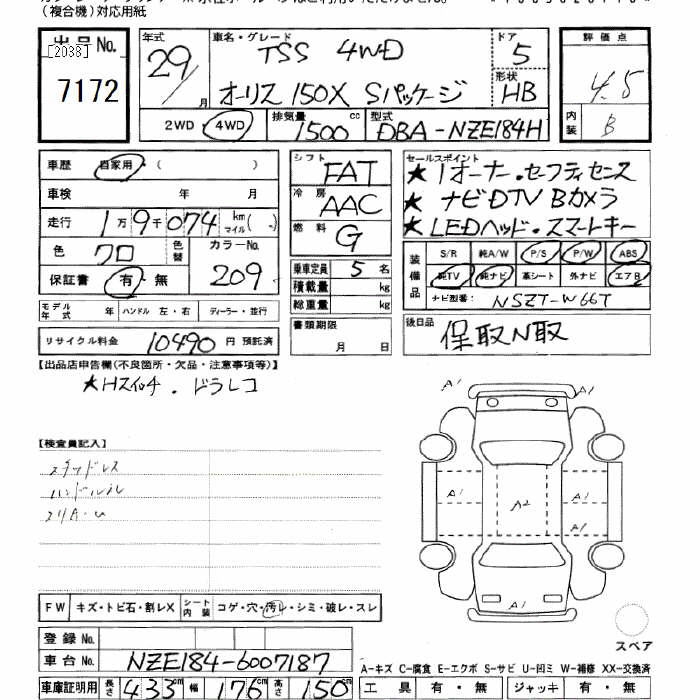 (複合機)対応用紙
出品No.
[2038]
7172
年式 29/月
車名・グレード TSS 4WD
オーリス 150X Sパッケージ
ドア 5
形状 HB
評価点 4.5
内装 B
2WD 4WD
排気量 1500 cc
型式 DBA-NZE184H
車歴 自家用 ( )
車検 年 月
走行 1万9千074 km マイル( )
色 クロ 色替 カラーNo. 209
保証書 有・無
モデル年式 年 ハンドル 左・右 ディーラー・並行
リサイクル料金 10490 円 預託済
シフト FAT
冷房 AAC
燃料 G
乗車定員 5 名
積載量 kg
総重量 kg
書類期限
月 日
セールスポイント
★1オーナー・セーフティセンス
★ナビDTV Bカメラ
★LEDヘッド・スマートキー
装備品 S/R 純A/W P/S P/W ABS
純TV 純ナビ 革シート 外ナビ エアB
ナビ型番: NSZT-W66T
後日品 保取N取
【出品店申告欄(不良箇所・欠品・注意事項等)】
★Hスイッチ . ドラレコ
【検査員記入】
スタッドレス
ハンドルスレ
A1 A1
A1 A2 A1
A1
A1
FW キズ・トビ石・割レX シート内装 コゲ・穴・汚レ・シミ・破レ・スレ
登録No.
車台No. NZE184-6007187
スペア
A-キズ C-腐食 E-エクボ S-サビ U-凹ミ W-補修 XX-交換済
車庫証明用 長さ 433cm 幅 176cm 高さ 150cm
工具 有・無 ジャッキ 有・無